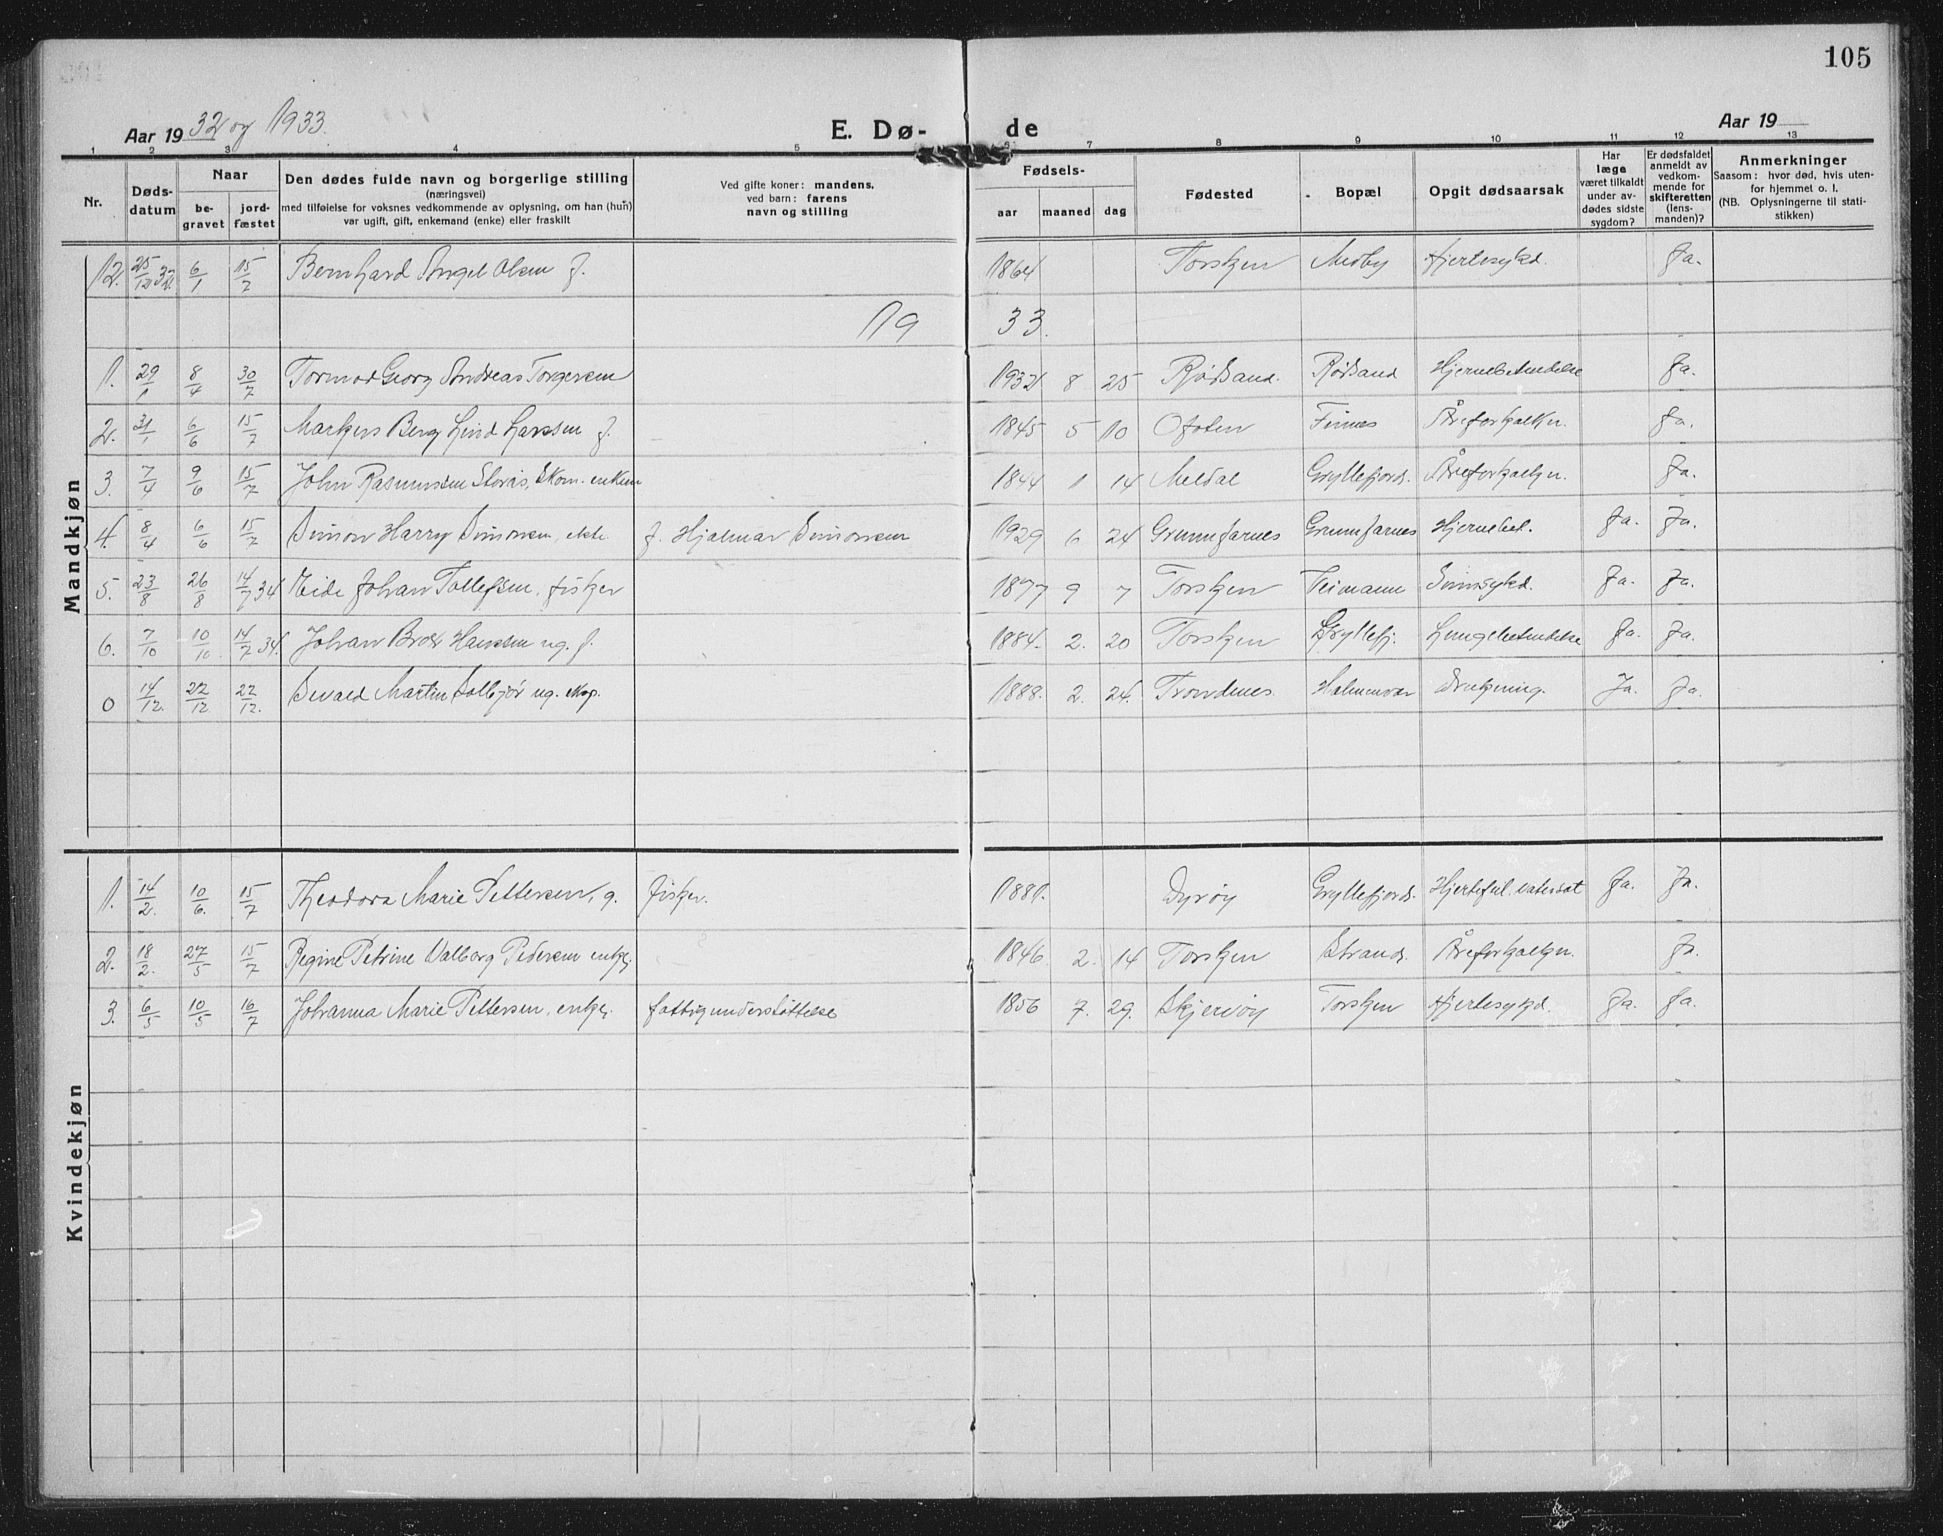 105
Aar 1932 og 1933. E. Dø- de Aar 19
1 2 3 4 5 6 7 8 9 10 11 12 13
Nr.
Døds-
datum
Naar
be-
gravet
jord-
fæstet
Den dødes fulde navn og borgerlige stilling
(næringsvei)
med tilføielse for voksnes vedkommende av oplysning, om han (hun)
var ugift, gift, enkemand (enke) eller fraskilt
Ved gifte koner: mandens.
ved barn: farens
navn og stilling
Fødsels-
aar maaned dag
Fødested
Bopæl
Opgit dødsaarsak
Har
læge
været tilkaldt
under av-
dødes sidste
sygdom?
Er dødsfaldet
anmeldt av
vedkom-
mende for
skifteretten
(lens-
manden)?
Anmerkninger
Saasom: hvor død, hvis uten-
for hjemmet o. l.
(NB. Oplysningerne til stati-
stikken)
Mandkjøn
12. 25/12 32. 6/1 15/7 Bernhard Angel Olsen f. 1864 Torsken Medby Hjertesykd. Ja.
19 33.
1. 29/1 8/4 30/7 Tormod Georg Andreas Torgersen 1932 8 25 Rødsand. Rødsand Hjernebetændelse Ja.
2. 31/1 6/6 15/7 Markus Berg Lind Larssen f. 1845 5 10 Ofoten Finnes Åreforkalkn. Ja.
3. 7/4 9/6 15/7 John Rasmussen Storås, Skom. enkem 1844 1 14 Meldal Gryllefjord. Åreforkalkn. Ja.
4. 8/4 6/6 15/7 Simon Harry Simonsen, ekte f. Hjalmar Simonsen 1929 6 24 Grunnfarnes Grunnfarnes Hjernebet. Ja. Ja.
5. 23/8 26/8 14/7 34 Johan Tollefsen, fisker 1877 9 7 Torsken Veimann Sinnsykd. Ja. Ja.
6. 7/10 10/10. 14/7 34. Johan Brox Hanssen ug. f. 1884. 2. 20 Torsken Gryllefj. Lungebetændelse Ja. Ja.
0 14/12. 22/12 22/12. Sevald Martin ug. 1888. 2. 24. Trondenes Holmenvær Drukning. Ja. Ja.
Kvindekjøn
1. 14/2. 10/6. 15/7 Theodora Marie Pettersen, g. fisker. 1881. Dyrøy Gryllefjord. Ja. Ja.
2. 18/2. 27/5 15/7 Regine Petrine Valborg Pedersen enke. 1846 2. 14 Torsken Strand. Åreforkalkn. Ja.
3. 6/5 10/5 16/7 Johanna Marie Pettersen, enke. fattigunderstøttelse 1856 7. 29. Skjervøy Torsken Hjertesykd. Ja. Ja.